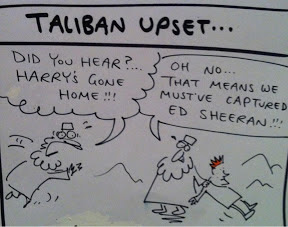 TALIBAN UPSET...
DID YOU HEAR?...
HARRY'S GONE
HOME!!!
OH NO...
THAT MEANS WE
MUST'VE CAPTURED
ED SHEERAN!!!